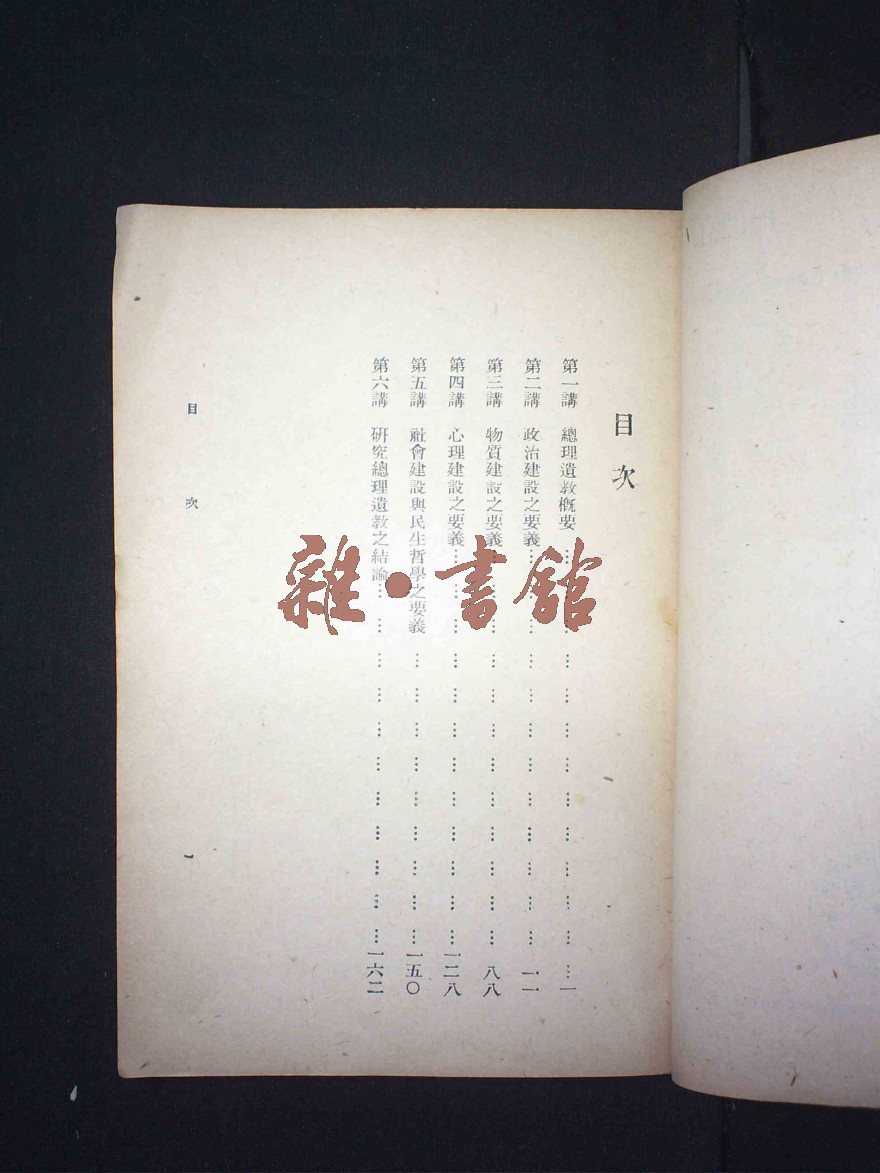 目次
第一講 總理遺教概要………………………………一
第二講 政治建設之要義………………………………一一
第三講 物質建設之要義………………………………八八
第四講 心理建設之要義………………………………一二八
第五講 社會建設與民生哲學之要義………………………一五〇
第六講 研究總理遺教之結論………………………………一六二
目次
一
雜·書館